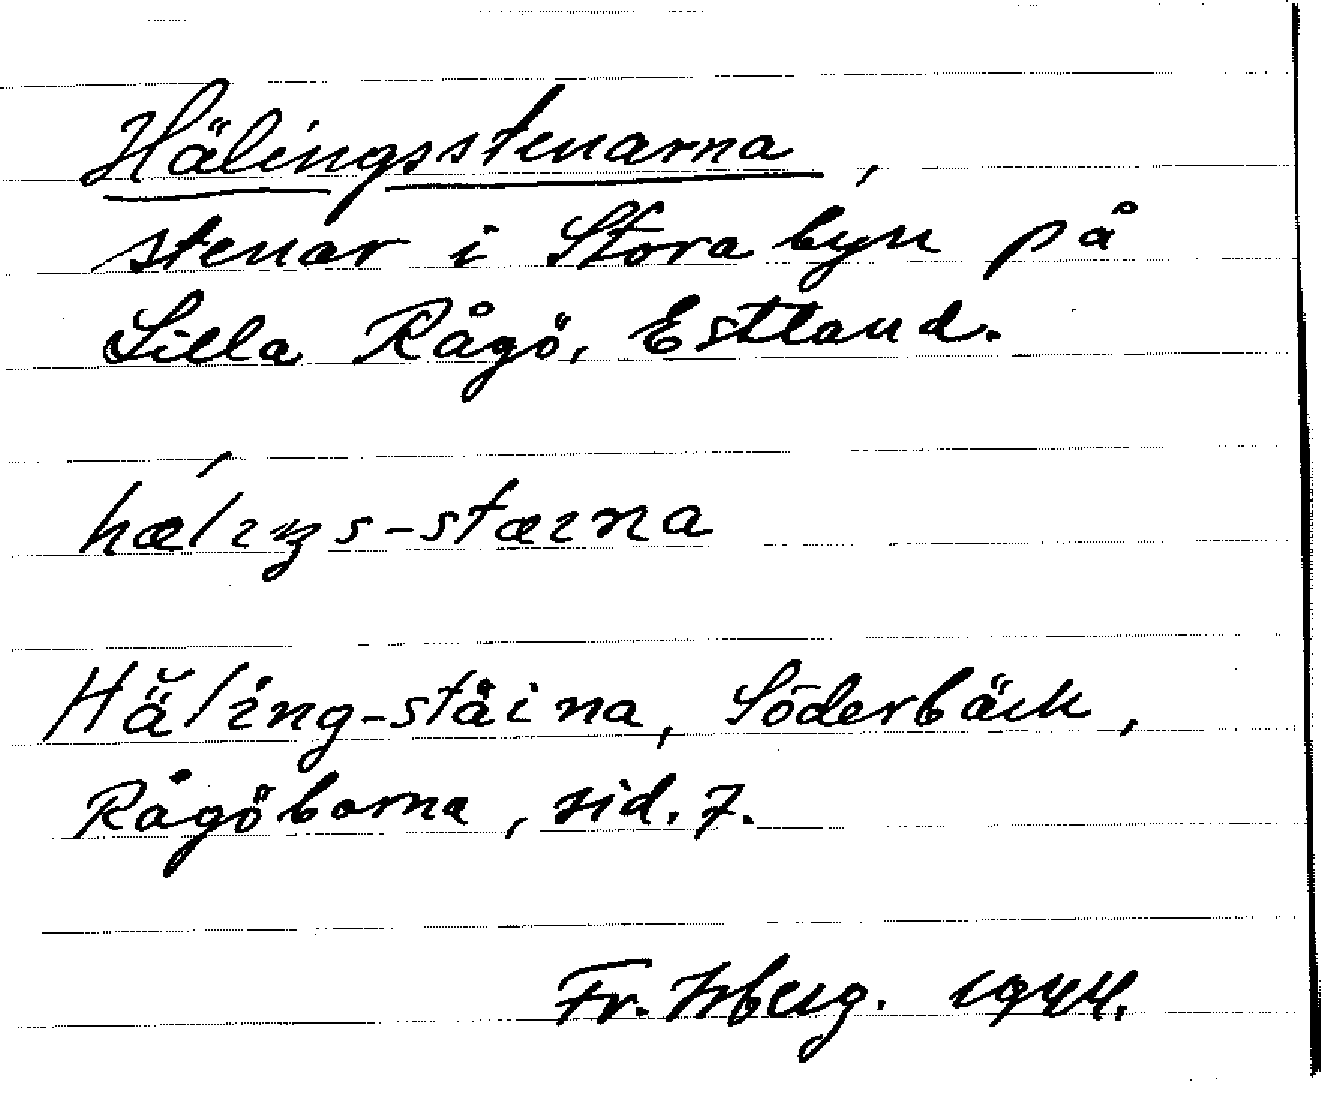 Hälingsstenarna,
stenar i Stora byn på
Lilla Rågö, Estland.
hælıŋs-stæına
Hä̆ling-stäina, Söderbäck,
Rågöborna, sid. 7.
Fr. 1944.